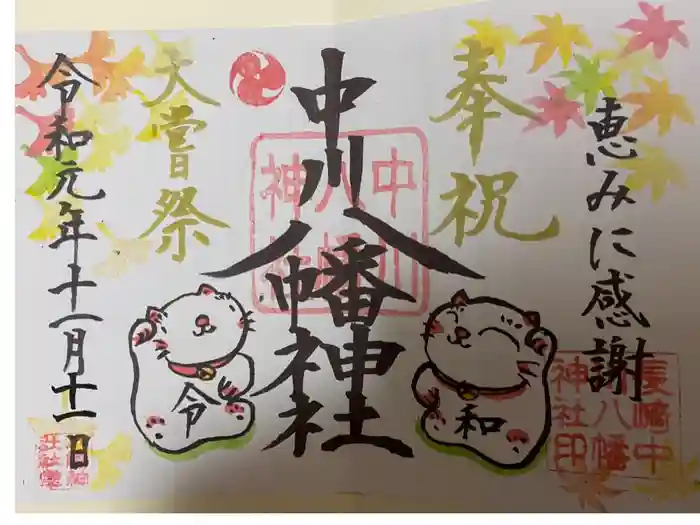 恵みに感謝
奉祝
中川八幡神社
大嘗祭
令和元年十一月十一日
令
和
中川
八幡
神社
長崎中
川八幡
神社印